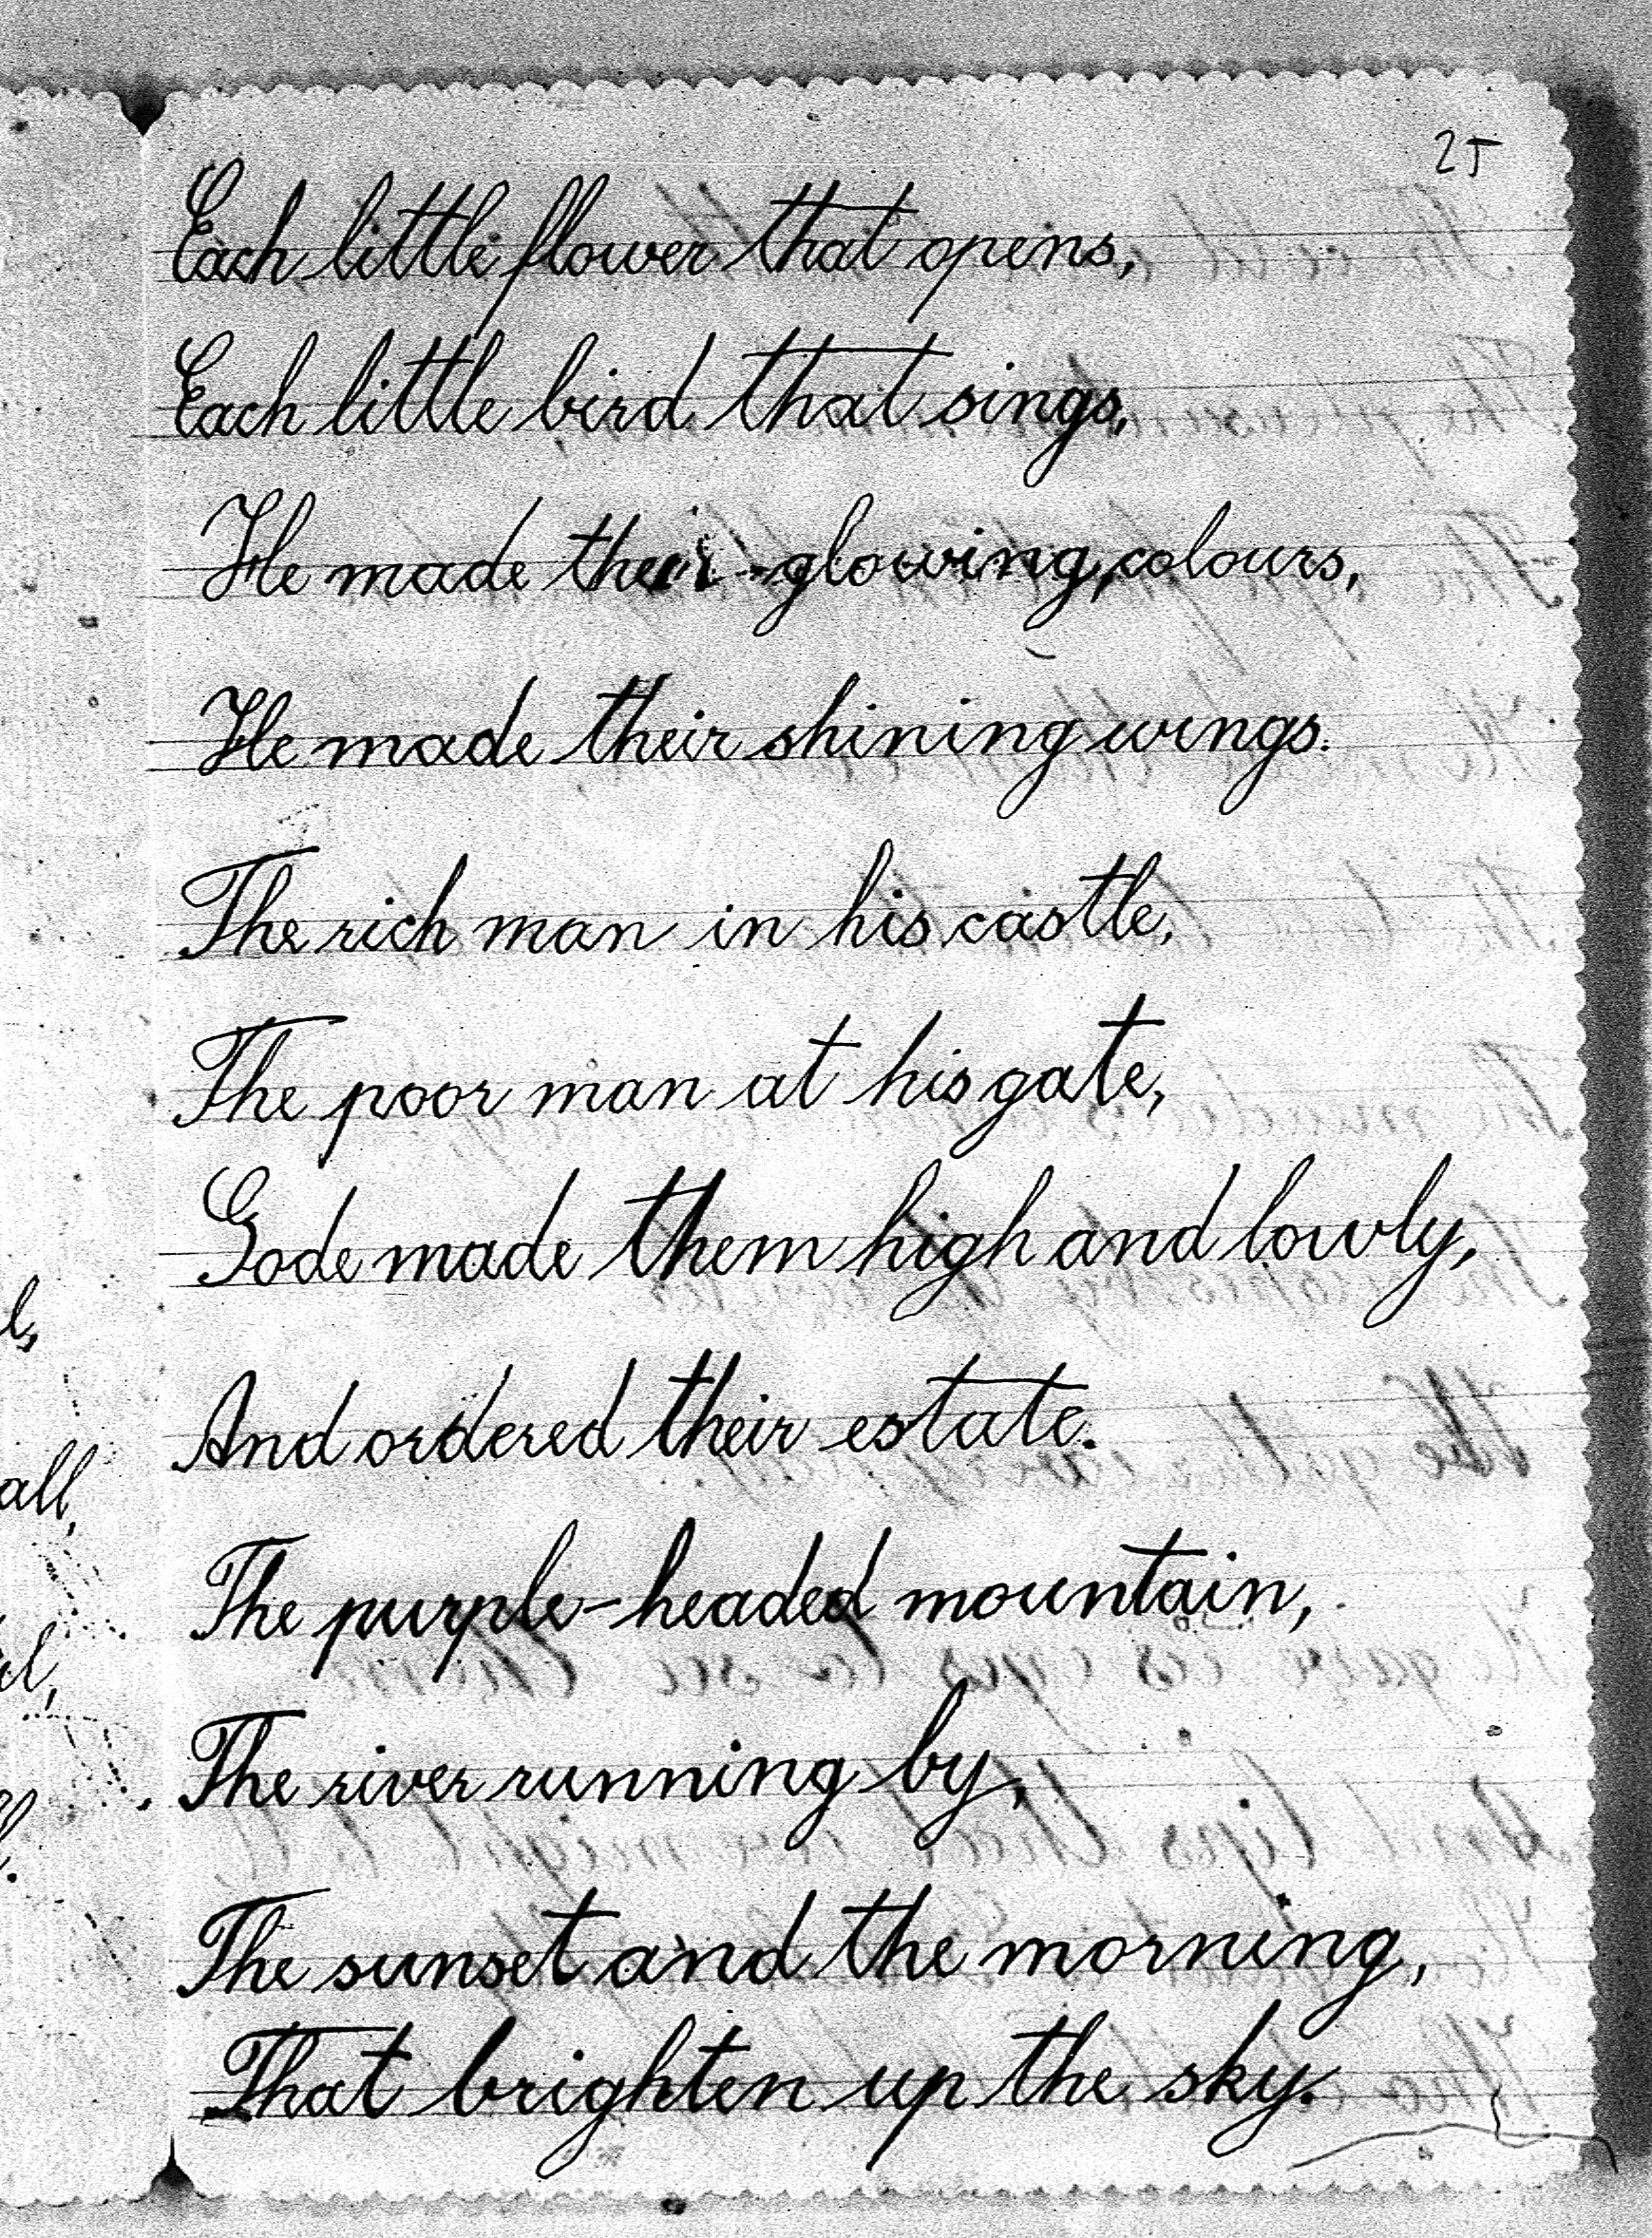 25
Each little flower that opens,
Each little bird that sings,
He made their glowing, colours,
He made their shining wings.
The rich man in his castle,
The poor man at his gate,
Gode made them high and lowly,
And ordered their estate.
The purple-headed mountain,
The river running by,
The sunset and the morning,
That brighten up the sky.